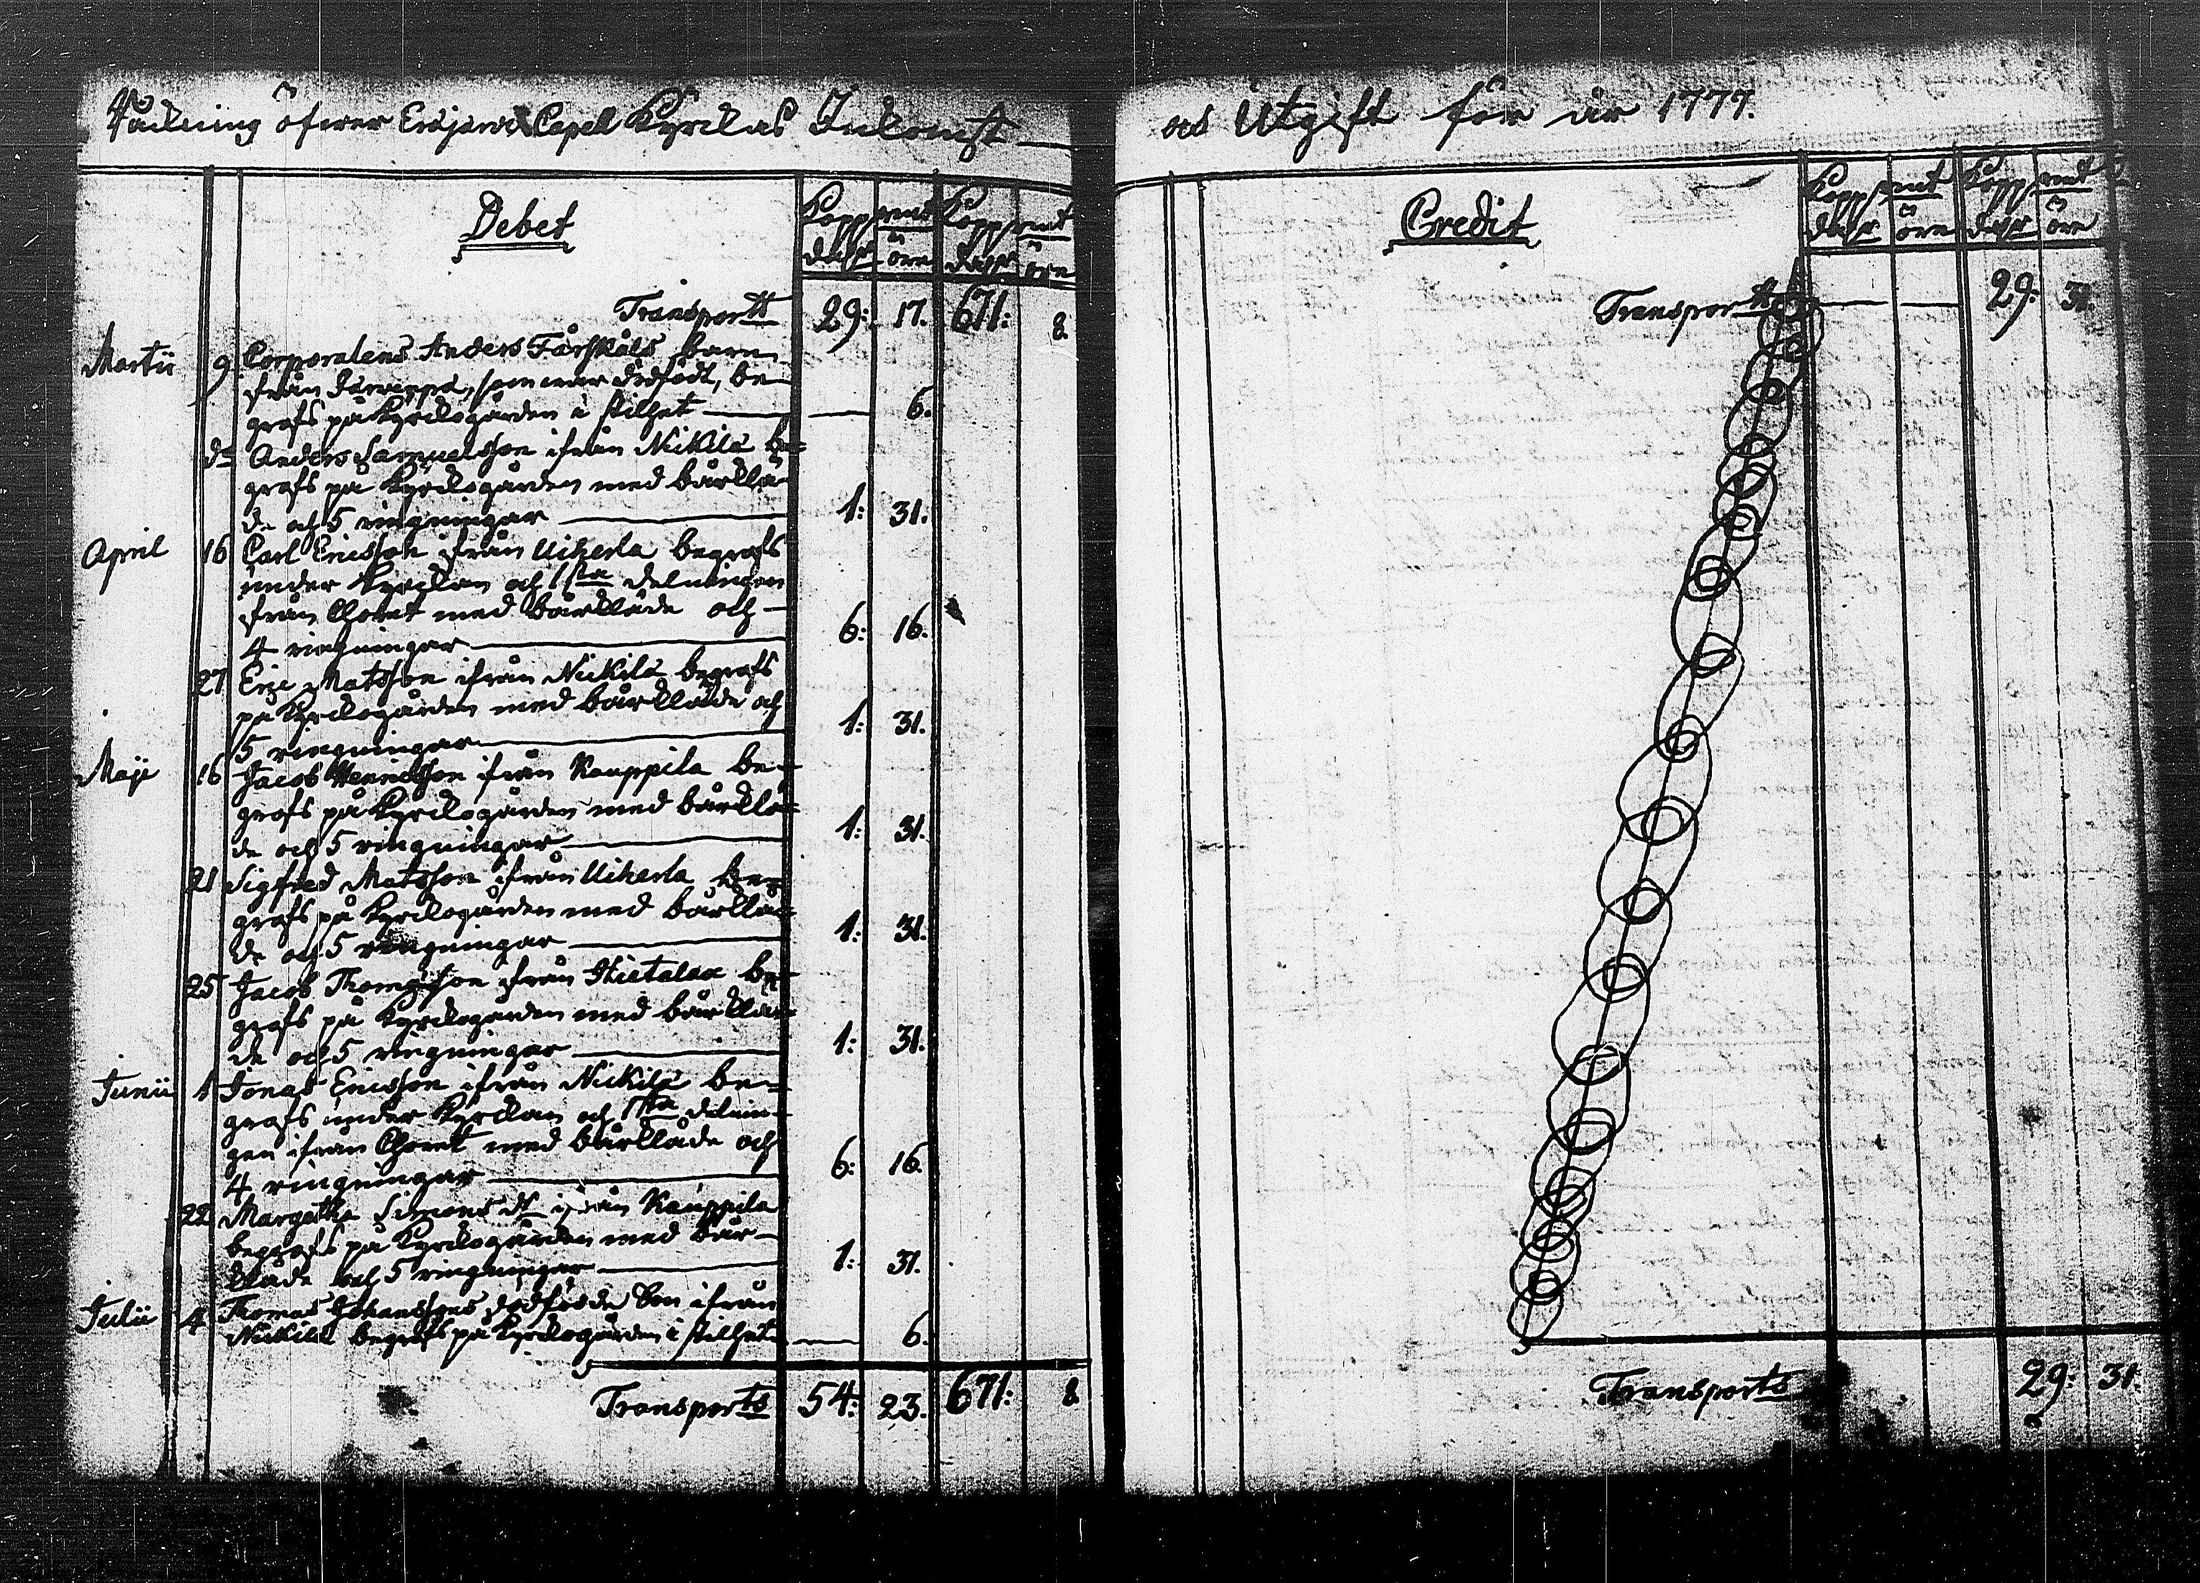 Räckning öfwer Eräjerwi Capell Kyrckas Inkomst
Debet
Kopp mnt Kopp mnt
dalr öre dalr öre
Transportt 29: 17. 671: 8
Martii 9 Corporalens Anders Fårskåls barn
från, som war dödfödt, be-
grafs på Kyrckogården i stilhet — 6.
do Anders Samuelsson ifrån Nickilä be-
grafs på Kyrckogården med bårklä-
de och 5 ringningar — 1: 31.
April 16 Carl Ericsson ifrån Uiherla begrafs
under Kyrckan och 1sta delningen
från Choret med bårkläde och
4 ringningar — 6: 16.
27 Eric Matsson ifrån Nickilä begrafs
på Kyrckogården med bårkläde och
5 ringningar — 1: 31.
Maji 16 Jacob Henricsson ifrån Kauppila be-
grafs på Kyrckogården med bårklä-
de och 5 ringningar — 1: 31.
21 Sigfred Matsson ifrån Uiherla be-
grafs på Kyrckogården med bårklä-
de och 5 ringningar — 1: 31.
25 Jacob Thomasson från Hietalax be-
grafs på Kyrckogården med bårklä-
de och 5 ringningar — 1: 31.
Junii 1 Jonas Ericsson ifrån Nickilä be-
grafs under Kyrckan och 1sta delnin-
gen ifrån Choret med bårkläde och
4 ringningar — 6: 16.
22 Margetha Simonsdr ifrån Kauppila
begrafs på Kyrckogården med bår-
kläde och 5 ringningar — 1: 31.
Julii 4 Thomas Johanssons dödfödde Son ifrån
Nickilä begrafs på Kyrckogården i stilhet — 6.
Transports 54: 23. 671: 8
och Utgift för år 1777.
Credit
Kopp mnt Kopp mnt
dalr öre dalr öre
Transportt — 29: 31.
Transports 29: 31.